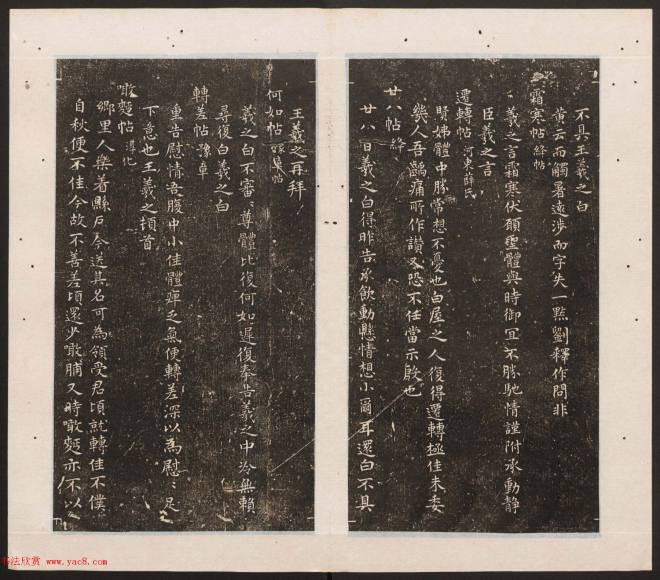 不具王羲之白
黄云而觸暑遠涉而字失一點劉釋作問非
霜寒帖 絳帖
羲之言霜寒伏願聖體與時御宜不勝馳情謹附承動靜
臣羲之言
遷轉帖 河東薛氏
賢姊體中勝常想不憂也白屋之人復得遷轉極佳未委
幾人吾齲痛所作讃又恐不任當示殷也
廿八帖 絳
廿八日羲之白得昨告承飲動懸情想小爾耳還白不具
王羲之再拜
何如帖
羲之白不審ミ尊體比復何如遲復奉告羲之中冷無賴
尋復白羲之白
轉差帖 豫章
重告慰情吾腹中小佳體痺乏氣便轉差深以為慰ミ足
下意也王羲之頓首
噉麪帖 淳化
鄉里人樂着縣戶今送其名可為領受君頃就轉佳不僕
自秋便不佳今故不善差頃還少噉脯又時噉麪亦不以之
书法欣赏 www.yac8.com